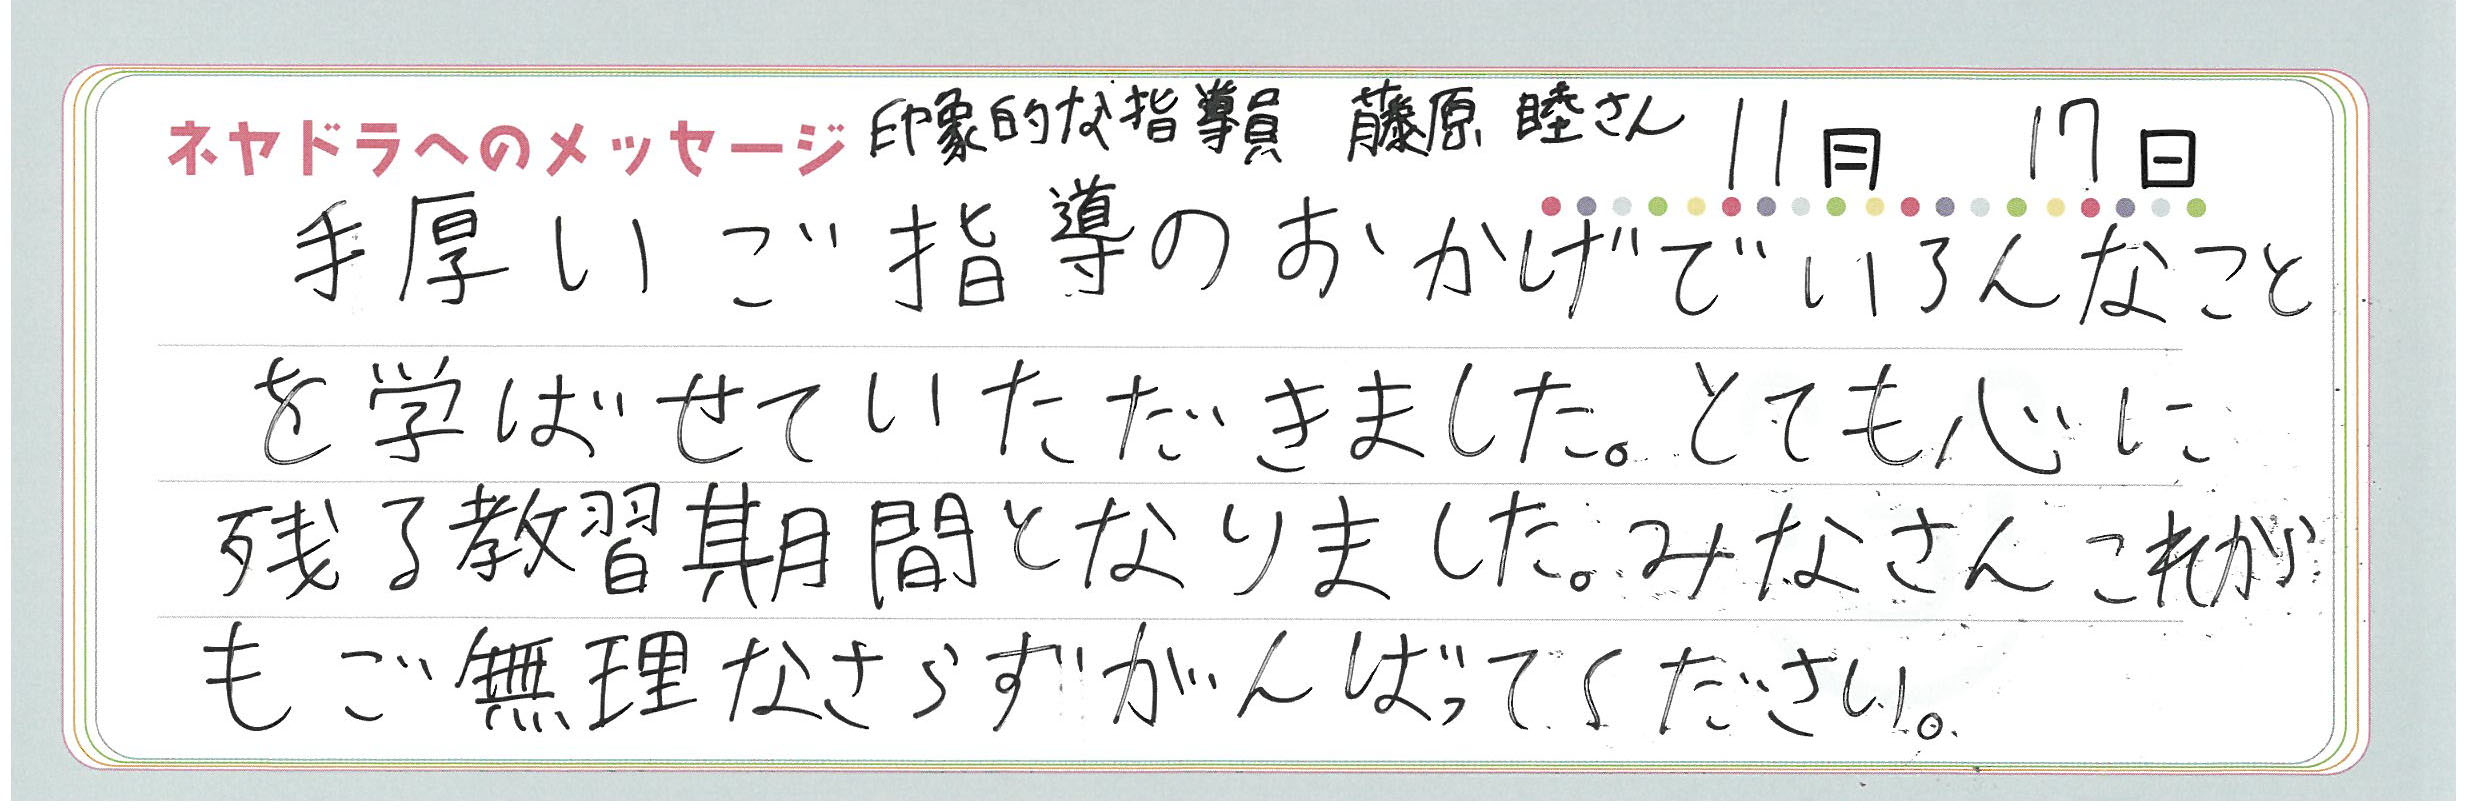 ネヤドラへのメッセージ 印象的な指導員 藤原 睦さん 11月 17日
手厚いご指導のおかげでいろんなこと
を学ばせていただきました。とても心に
残る教習期間となりました。みなさんこれから
もご無理なさらずがんばってください。